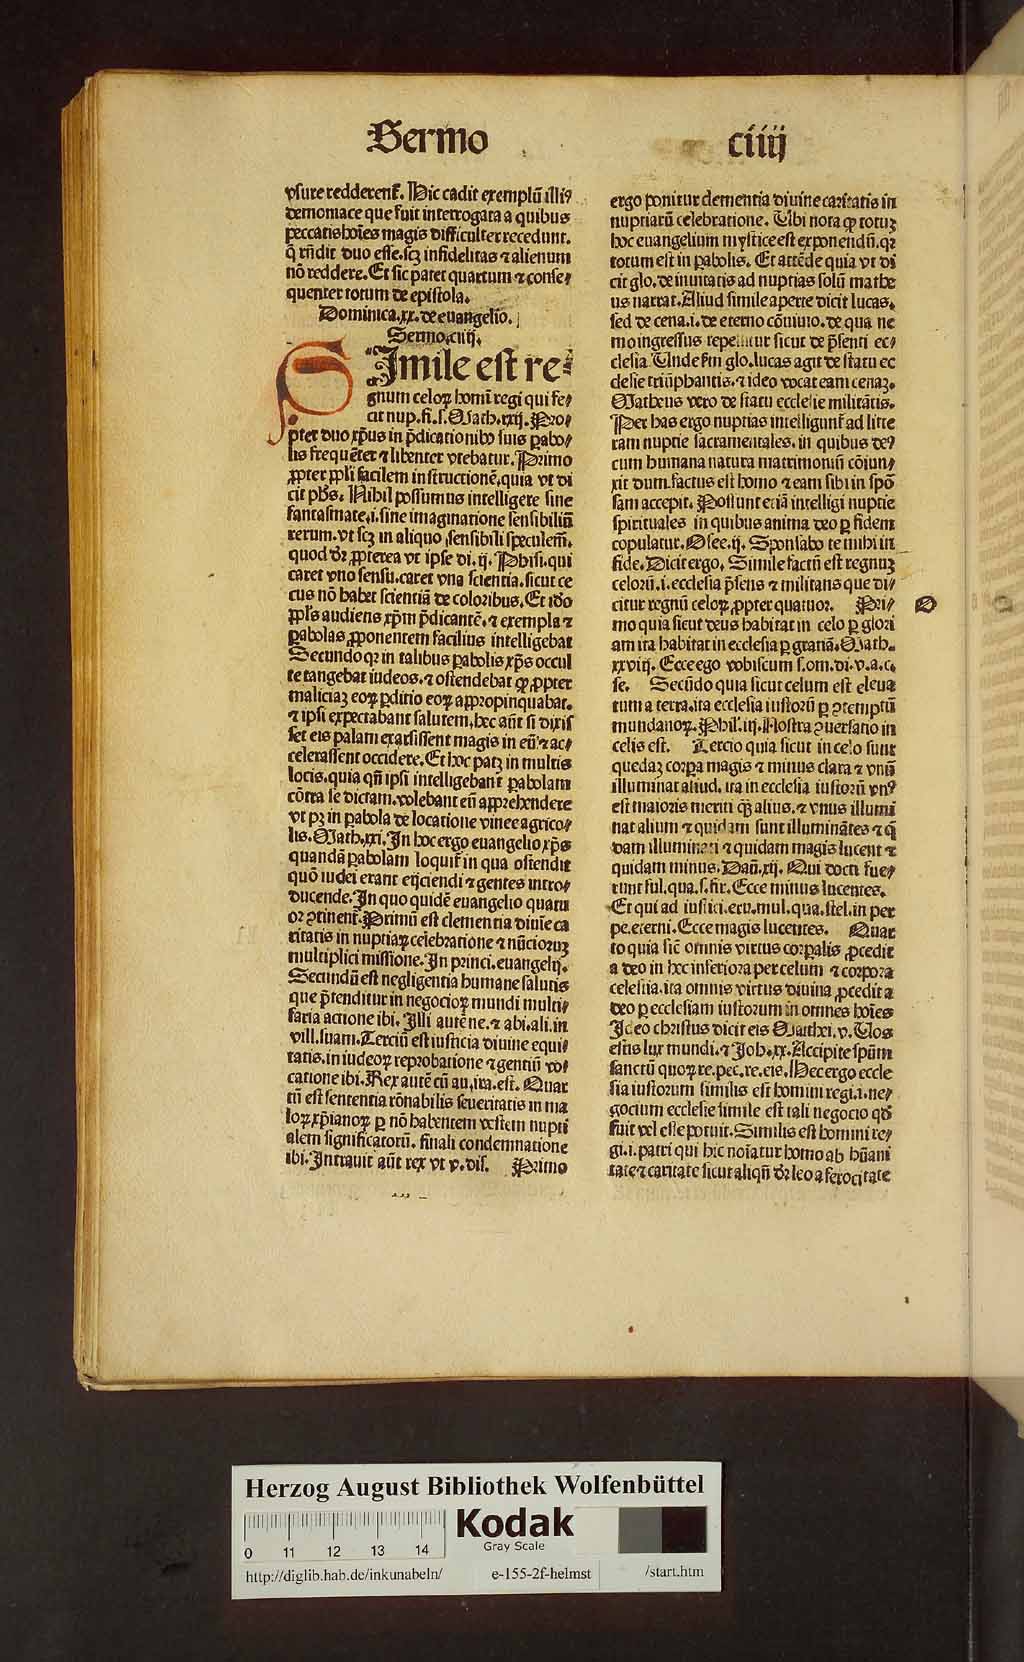 Sermo
ciiij
vsure redderent̃. Hic cadit exemplũ illiꝰ
demoniace que fuit interrogata a quibus
peccatis hoĩes magis difficulter recedunt.
q̃ rñdit duo esse. scꝫ infidelitas ⁊ alienum
nõ reddere. Et sic patet quartum ⁊ conse⸗
quenter totum de epistola.
Dominica.xx. de euangelio.
Sermo.ciiij.
SImile est re⸗
gnum celoꝝ homĩ regi qui fe⸗
cit nup. fi. s. Math. xxij. Pro⸗
pter duo xp̃us in p̃dicationibꝰ suis ꝑabo⸗
lis frequẽter ⁊ libenter vtebatur. Primo
ꝓpter pp̃li facilem instructionẽ, quia vt di
cit ph̃s. Nihil possumus intelligere sine
fantasmate. i. sine imaginatione sensibiliũ
rerum. vt scꝫ in aliquo sensibili speculem̃.
quod dr̃ ꝓpterea vt ipse di. ij. Phisi. qui
caret vno sensu. caret vna scientia. sicut ce
cus nõ habet scientiã de coloribus. Et iđo
pp̃ls audiens xp̃m p̃dicantẽ. ⁊ exempla ⁊
ꝑabolas ꝓponentem facilius intelligebat
Secundo qꝛ in talibus ꝑabolis xp̃s occul
te tangebat iudeos. ⁊ ostendebat ꝙ ꝓpter
maliciaꝫ eoꝝ ꝑditio eoꝝ appropinquabat.
⁊ ipsi expectabant salutem. hec aũt si dixis
set eis palam exarsissent magis in eũ ⁊ ac⸗
celerassent occidere. Et hoc patꝫ in multis
locis. quia qñ ipsi intelligebant ꝑabolam
cõtra se dictam. volebant eũ apprehendere
vt pꝫ in ꝑabola de locatione vinee agrico⸗
lis. Math. xxi. In hoc ergo euangelio xp̃s
quandã ꝑabolam loquit̃ in qua ostendit
quõ iudei erant eijciendi ⁊ gentes intro⸗
ducende. In quo quidẽ euangelio quatu
or ꝯtinent̃. Primũ est clementia diuine ca
ritatis in nuptiaꝝ celebratione ⁊ nũcioruꝫ
multiplici missione. In princi. euangelij.
Secundũ est negligentia humane salutis
que p̃tenditur in negocioꝝ mundi multi⸗
faria actione ibi. Illi autẽ ne. ⁊ abi. ali. in
vill. suam. Terciũ est iusticia diuine equi⸗
tatis. in iudeoꝝ reprobatione ⁊ gentiũ vo⸗
catione ibi. Rex autẽ cũ au, ira. est. Quar
tũ est sententia rõnabilis seueritatis in ma
loꝝ xp̃ianoꝝ ꝑ nõ habentem vestem nupti
alem significatorũ. finali condemnatione
ibi. Intrauit aũt rex vt v. dis. Primo
ergo ponitur clementia diuine caritatis in
nuptiarũ celebratione. Ubi nota ꝙ totuꝫ
hoc euangelium mystice est exponendũ. qꝛ
totum est in ꝑabolis. Et attẽde quia vt di
cit glo. de inuitatis ad nuptias solũ mathe
us narrat. Aliud simile aperte dicit lucas.
sed de cena. i. de eterno cõuiuio. de qua ne
mo ingressus repellitur sicut de p̃senti ec⸗
clesia. Unde ẜm glo. lucas agit de statu ec
clesie triũphantis. ⁊ ideo vocat eam cenaꝫ.
Matheus vero de statu ecclesie militãtis.
Per has ergo nuptias intelligunt̃ ad litte
ram nuptie sacramentales. in quibus de⸗
cum humana natura matrimoniũ cõiun⸗
xit dum. factus est homo ⁊ eam sibi in spõ
sam accepit. Possunt eciã intelligi nuptie
spirituales in quibus anima deo ꝑ fidem
copulatur. Osee. ij. Sponsabo te mihi in
fide. Dicit ergo. Simile factũ est regnuꝫ
celorũ. i. ecclesia p̃sens ⁊ militans que di⸗
citur regnũ celoꝝ ꝓpter quatuor. Pri⸗
mo quia sicut deus habitat in celo ꝑ glori
am ita habitat in ecclesia ꝑ gratiã. Math.
xxviij. Ecce ego vobiscum s. om. di. v. a. c.
se. Secũdo quia sicut celum est eleua
tum a terra. ita ecclesia iustorũ ꝑ ꝯtemptũ
mundanoꝝ. Phil. iij. Nostra ꝯuersatio in
celis est. Tercio quia sicut in celo sunt
quedaꝫ corꝑa magis ⁊ minus clara ⁊ vnũ
illuminat aliud. ita in ecclesia iustorũ vnꝰ
est maioris meriti q̃ꝫ alius. ⁊ vnus illumi
nat alium ⁊ quidam sunt illuminãtes ⁊ q̃
dam illuminati ⁊ quidam magis lucent ⁊
quidam minus. Dañ. xij. Qui docti fue⸗
runt ful. qua. s. fir. Ecce minus lucentes.
Et qui ad iustici. eru. mul. qua. stel. in per
pe. eterni. Ecce magis lucentes. Quar
to quia sic̃ omnis virtus corꝑalis ꝓcedit
a deo in hec inferiora per celum ⁊ corpora
celestia. ita omnis virtus diuina ꝓcedit a
deo ꝑ ecclesiam iustorum in omnes hoĩes
Ideo christus dicit eis Mathei. v. Uos
estis lux mundi. ⁊ Joh. xx. Accipite sp̃um
sanctũ quoꝝ re. pec. re. eis. Hec ergo eccle
sia iustorum similis est homini regi. i. ne⸗
gocium ecclesie simile est tali negocio qđ
fuit vel esse potuit. Similis est homini re⸗
gi. i. patri qui hic noĩatur homo ab hũani
tate ⁊ caritate sicut aliqñ dr̃ leo a ferocitate
Herzog August Bibliothek Wolfenbüttel
Kodak
Gray Scale
0 11 12 13 14
http://diglib.hab.de/inkunabeln/ e-155-2f-helmst /start.htm